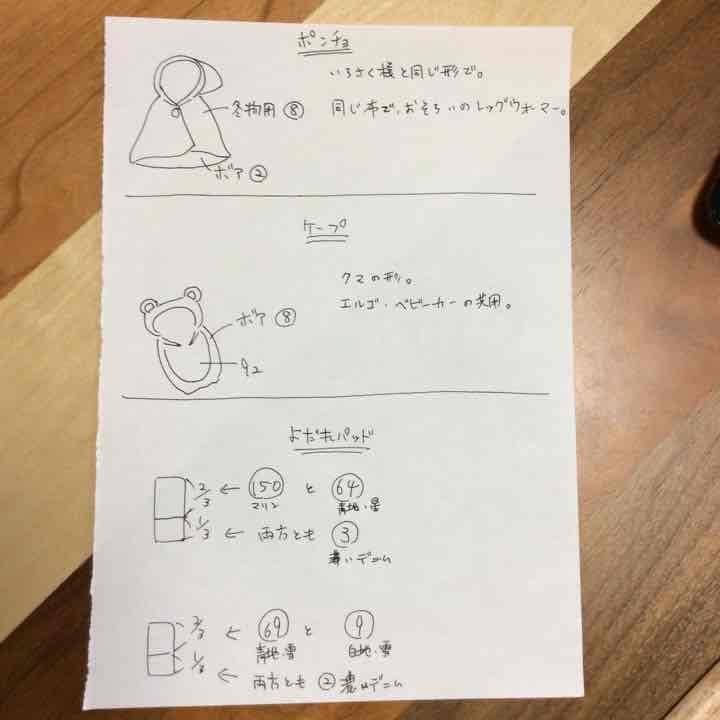 ポンチョ
いろさく様と同じ形で。
冬物用 ⑧
同じ布で、おそろいのレッグウォーマー。
ボア ②
ケープ
クマの形。
エルゴ・ベビーカーの共用。
ボア ⑧
92
よだれパッド
2/3 ← 150 と 64
マリン 青地・星
1/3 ← 両方とも ③
薄いデニム
2/3 ← 69 と 9
青地・雪 白地・雪
1/3 ← 両方とも ② 濃いデニム